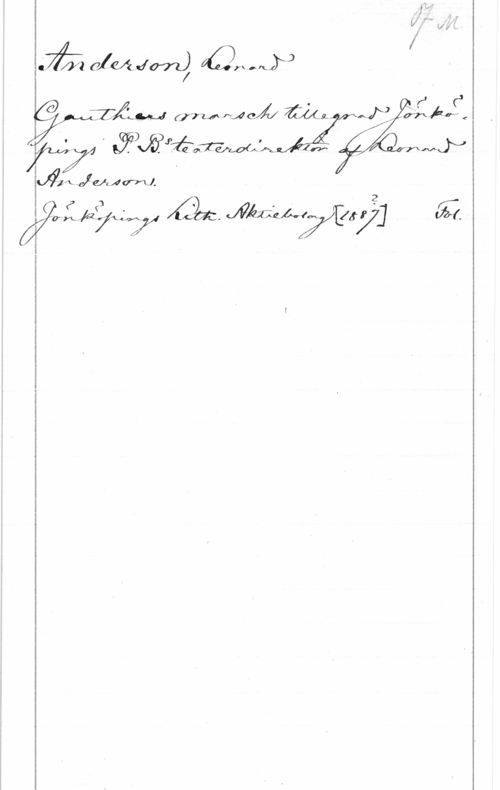 07 M
Anderson, Leonard
Gauthiers marsch tillegnad Jönkö-
pings P. B:s teaterdirektör af Leonard
Anderson.
Jönköpings Lith. Aktiebolag [188?7] Fol.